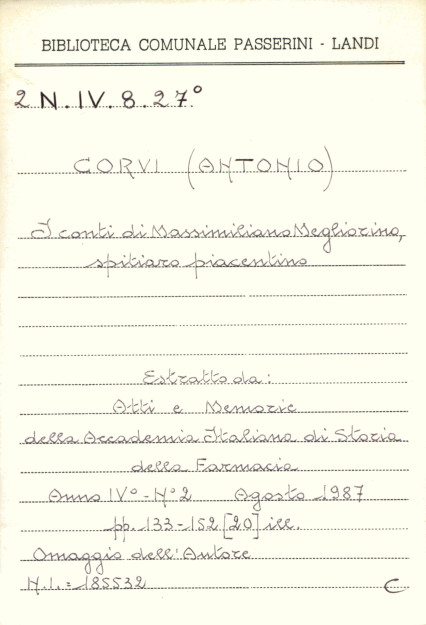 BIBLIOTECA COMUNALE PASSERINI - LANDI
2 N.IV.8.27°
CORVI (ANTONIO)
I conti di Massimiliano Megliorino,
spitiaro piacentino
Estratto da:
Atti e Memorie
della Accademia Italiana di Storia
della Farmacia
Anno IV° - N° 2 Agosto 1987
pp. 133-152 [20] ill.
Omaggio dell'Autore
N.I. = 185532
C